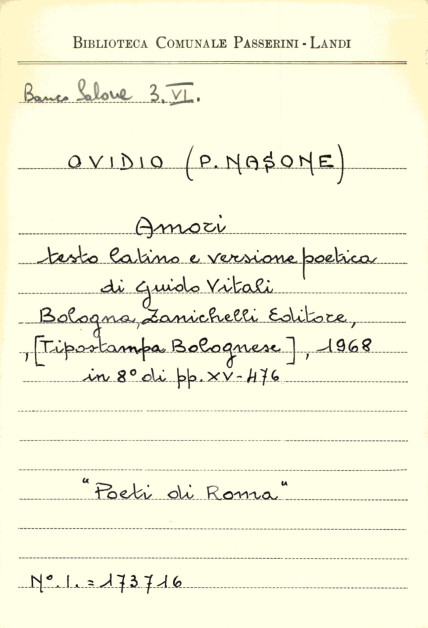 BIBLIOTECA COMUNALE PASSERINI - LANDI
Banco Salone 3.VI.
OVIDIO (P. NASONE)
Amori
testo latino e versione poetica
di Guido Vitali
Bologna, Zanichelli Editore,
, [Tipostampa Bolognese], 1968
in 8° di pp. XV-476
"Poeti di Roma"
N°. I. = 173716